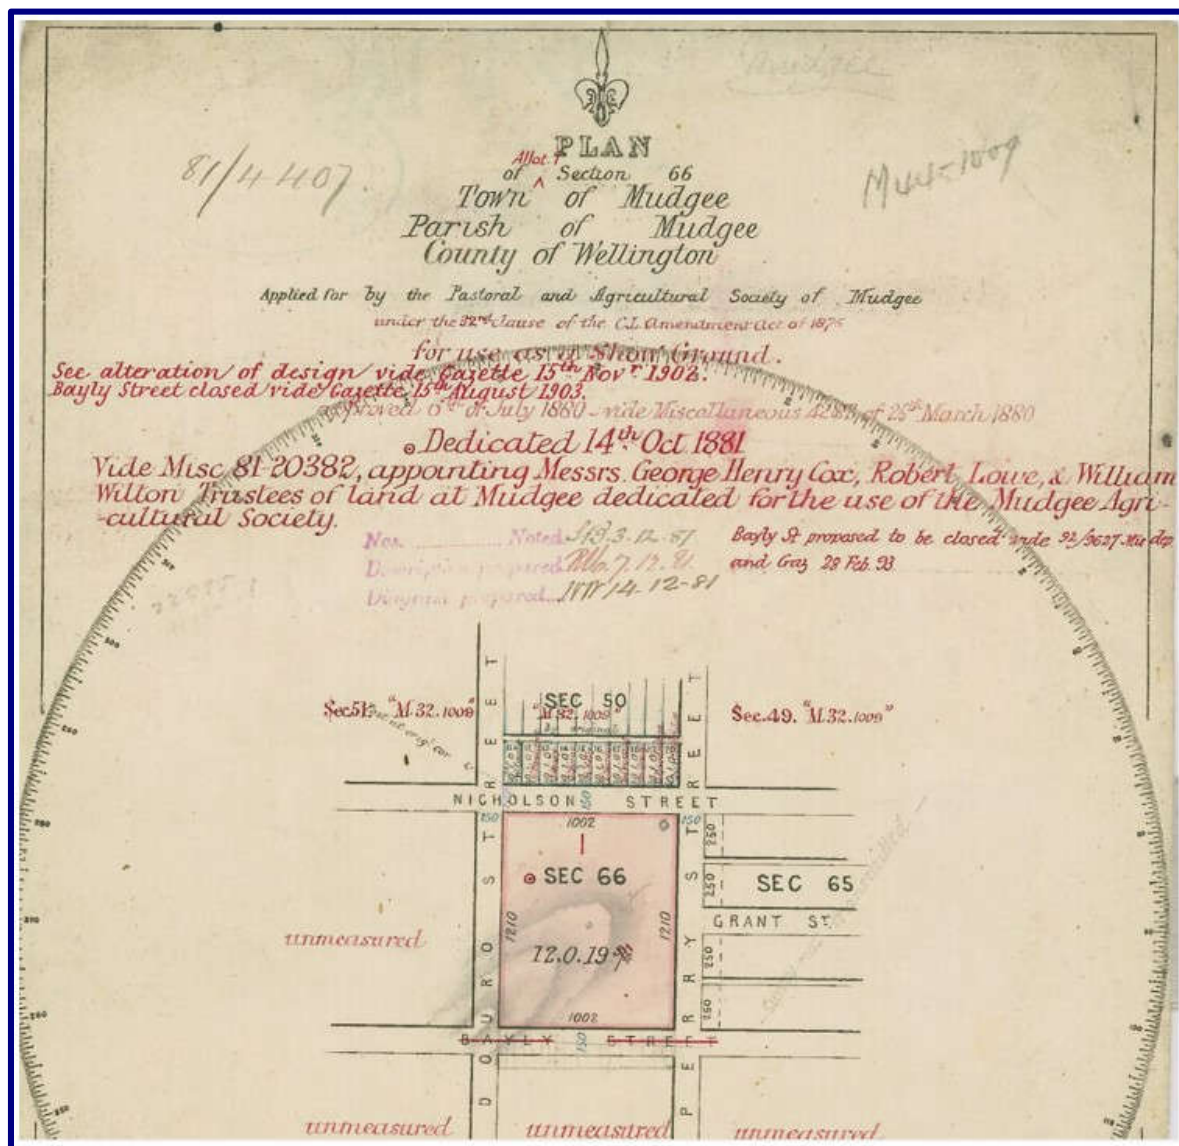 Mudgee
81/4407.
M44-1009
PLAN
Allot. 1
of ^ Section 66
Town of Mudgee
Parish of Mudgee
County of Wellington
Applied for by the Pastoral and Agricultural Society of Mudgee
under the 32nd clause of the C.L. Amendment Act of 1875
for use as a Show Ground.
See alteration of design vide Gazette 15th Novr 1902.
Bayly Street closed vide Gazette 15th August 1903.
of July 1880 - vide Miscellaneous of 25th March 1880
Dedicated 14th Oct 1881
Vide Misc. 81-20382, appointing Messrs. George Henry Cox, Robert Lowe, & William
Wilton Trustees of land at Mudgee dedicated for the use of the Mudgee Agri-
-cultural Society.
Noted 3-12-81
Description prepared 7.12.81
Diagram prepared 14-12-81
Bayly St proposed to be closed vide 92/9627
and Gaz 28 Feb. 93
STREET
SEC 50
STREET
Sec. 51. "M.32.1009"
"M.32.1009"
Sec. 49. "M.32.1009"
NICHOLSON STREET
150
150
150
1002
1
SEC 66
1210
1210
12.0.19
1002
250
250
250
250
SEC 65
GRANT ST.
unmeasured
BAYLY STREET
150
DOURO ST
PERRY ST
unmeasured
unmeasured
unmeasured